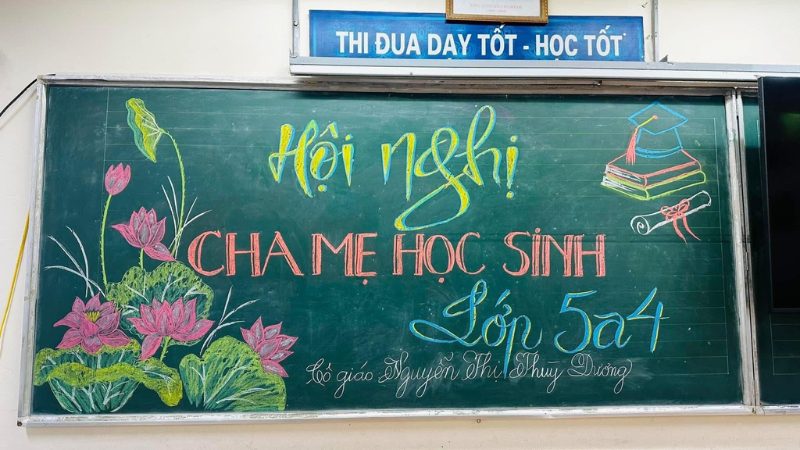 THI ĐUA DẠY TỐT - HỌC TỐT
Hội nghị
CHA MẸ HỌC SINH
Lớp 5a4
Cô giáo Nguyễn Thị Thuỳ Dương